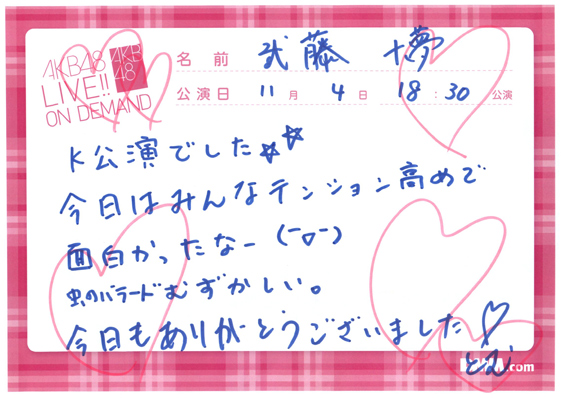 AKB48
LIVE!!
ON DEMAND
AKB
48
名前 武藤 十夢
公演日 11月 4日 18:30 公演
K公演でした☆☆
今日はみんなテンション高めで
面白かったなー (ー○ー)
虫のバラードむずかしい。
今日もありがとうございました♡
とむ
.com